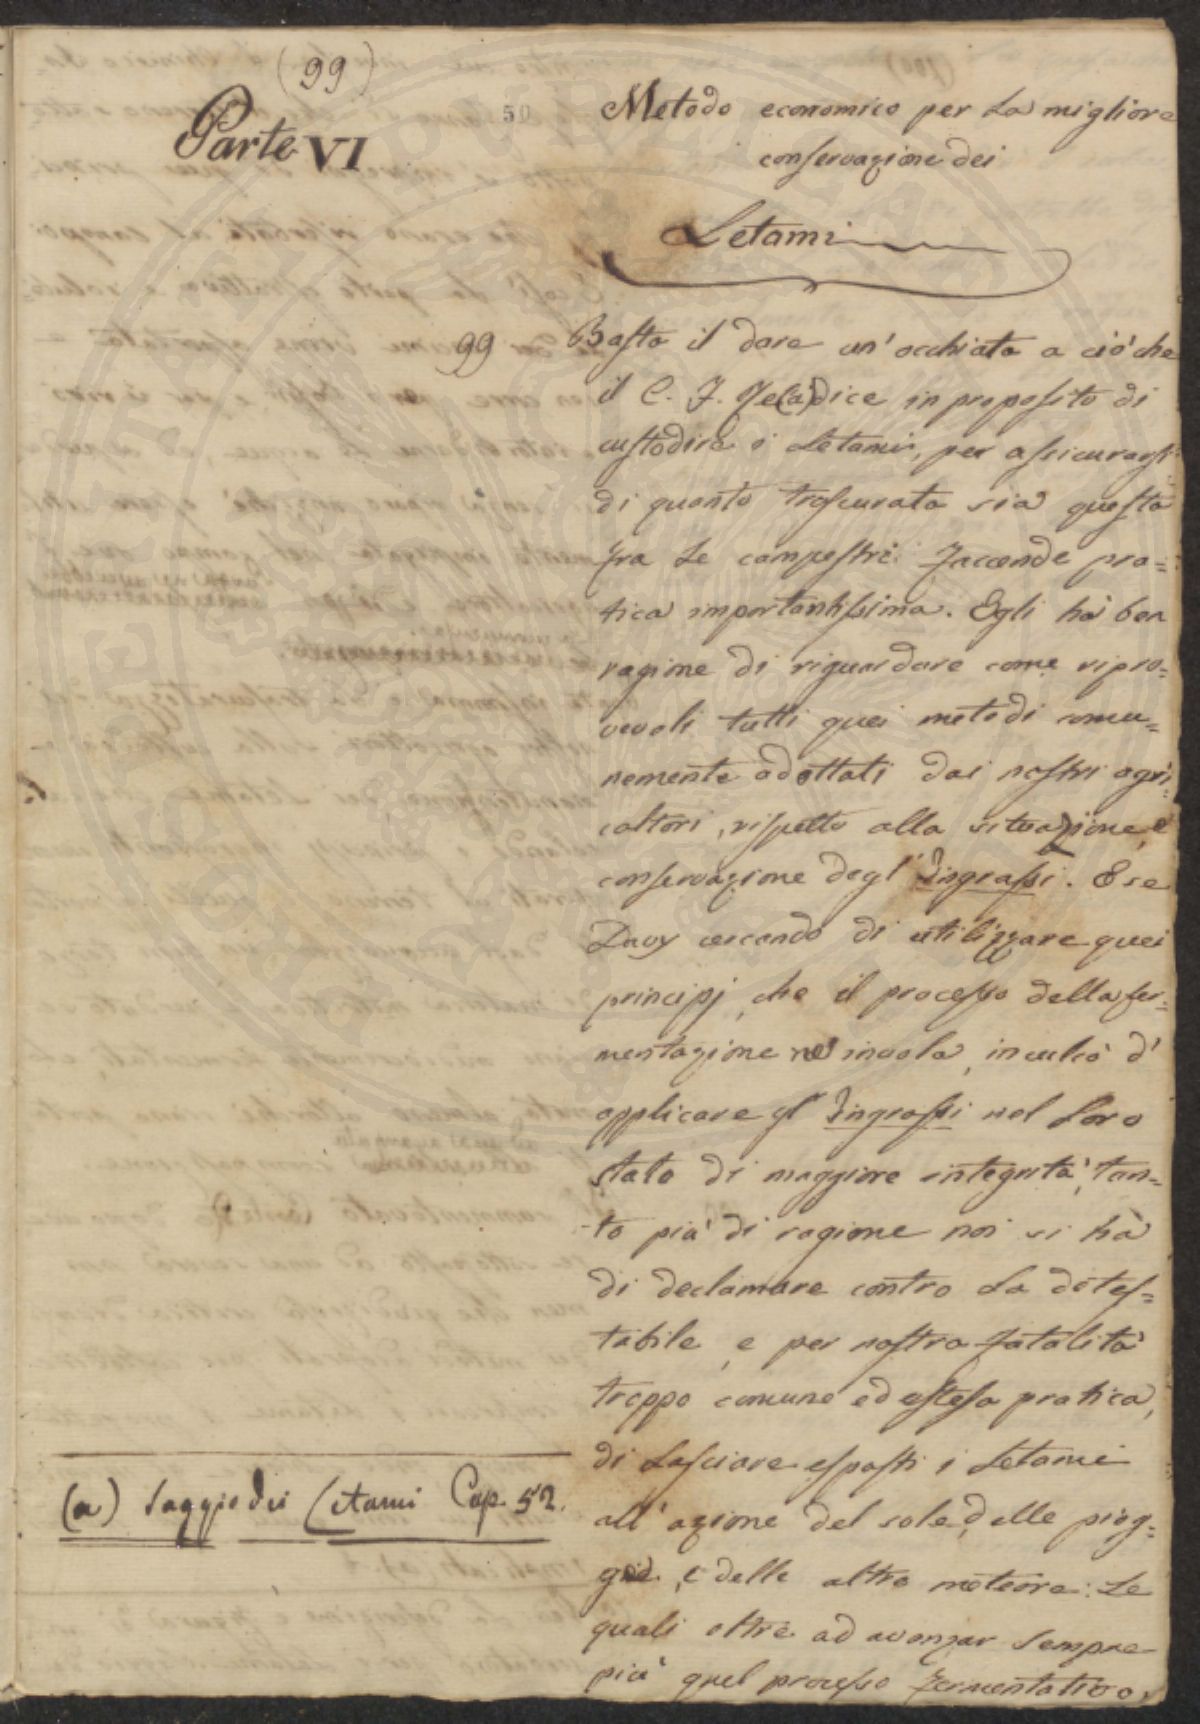 (99)
Parte VI
50
Metodo economico per La migliore
conservazione dei
Letami
99
Basta il dare un' occhiata a ciò che
il C. F. Re (a) dice in proposito di
custodire i Letami, per assicurarsi
di quanto trascurata sia questa
fra Le campestri faccende pra=
tica importantissima. Egli hà ben
ragione di riguardare come ripro=
vevoli tutti quei metodi comu=
nemente adottati dai nostri agri=
coltori, rispetto alla situazione, e
conservazione degl' Ingrassi. E se
Davy cercando di utilizzare quei
principj, che il processo della fer=
mentazione ne invola, inculcò d'
applicare gl' Ingrassi nel Loro
stato di maggiore integrità, tan=
to più di ragione noi si hà
di declamare contro La detes=
tabile, e per nostra fatalità
troppo comune ed estesa pratica,
di Lasciare esposti i Letami
all' azione del sole, delle piog=
gie, e delle altre meteore: Le
quali oltre ad avanzar sempre
più quel processo fermentativo,
(a) Saggio dei Letami Cap. 52.